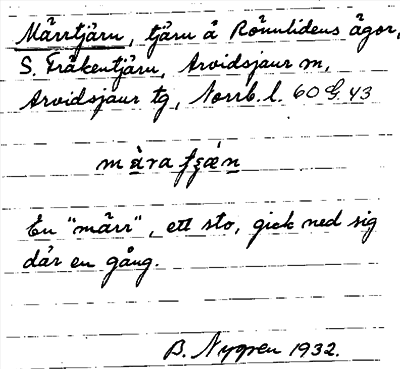 Märrtjärn, tjärn å Rönnlidens ägor,
S. Fräkentjärn, Arvidsjaur sn,
Arvidsjaur tg, Norrb. l. 60 G. 43
En "märr", ett sto, gick ned sig
där en gång.
B. Nygren 1932.